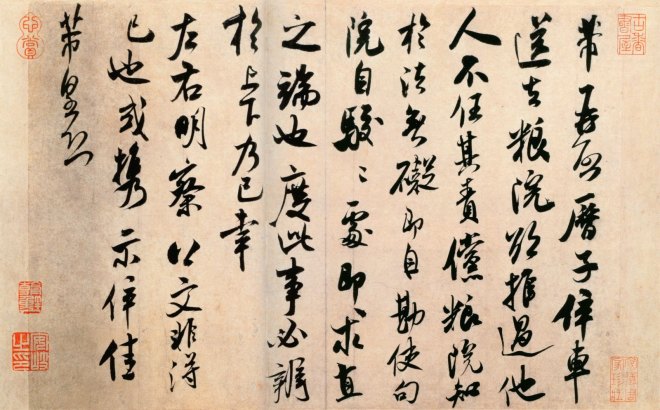 芾再啓曆子倅車
送去粮院欲推過他
人不任其責儻粮院知
於法無礙即自勘使句
院自駁〻處即求直
之端也度此事必辨
於上下乃已幸
左右明察以文非得
已也或携示倅佳
芾皇恐